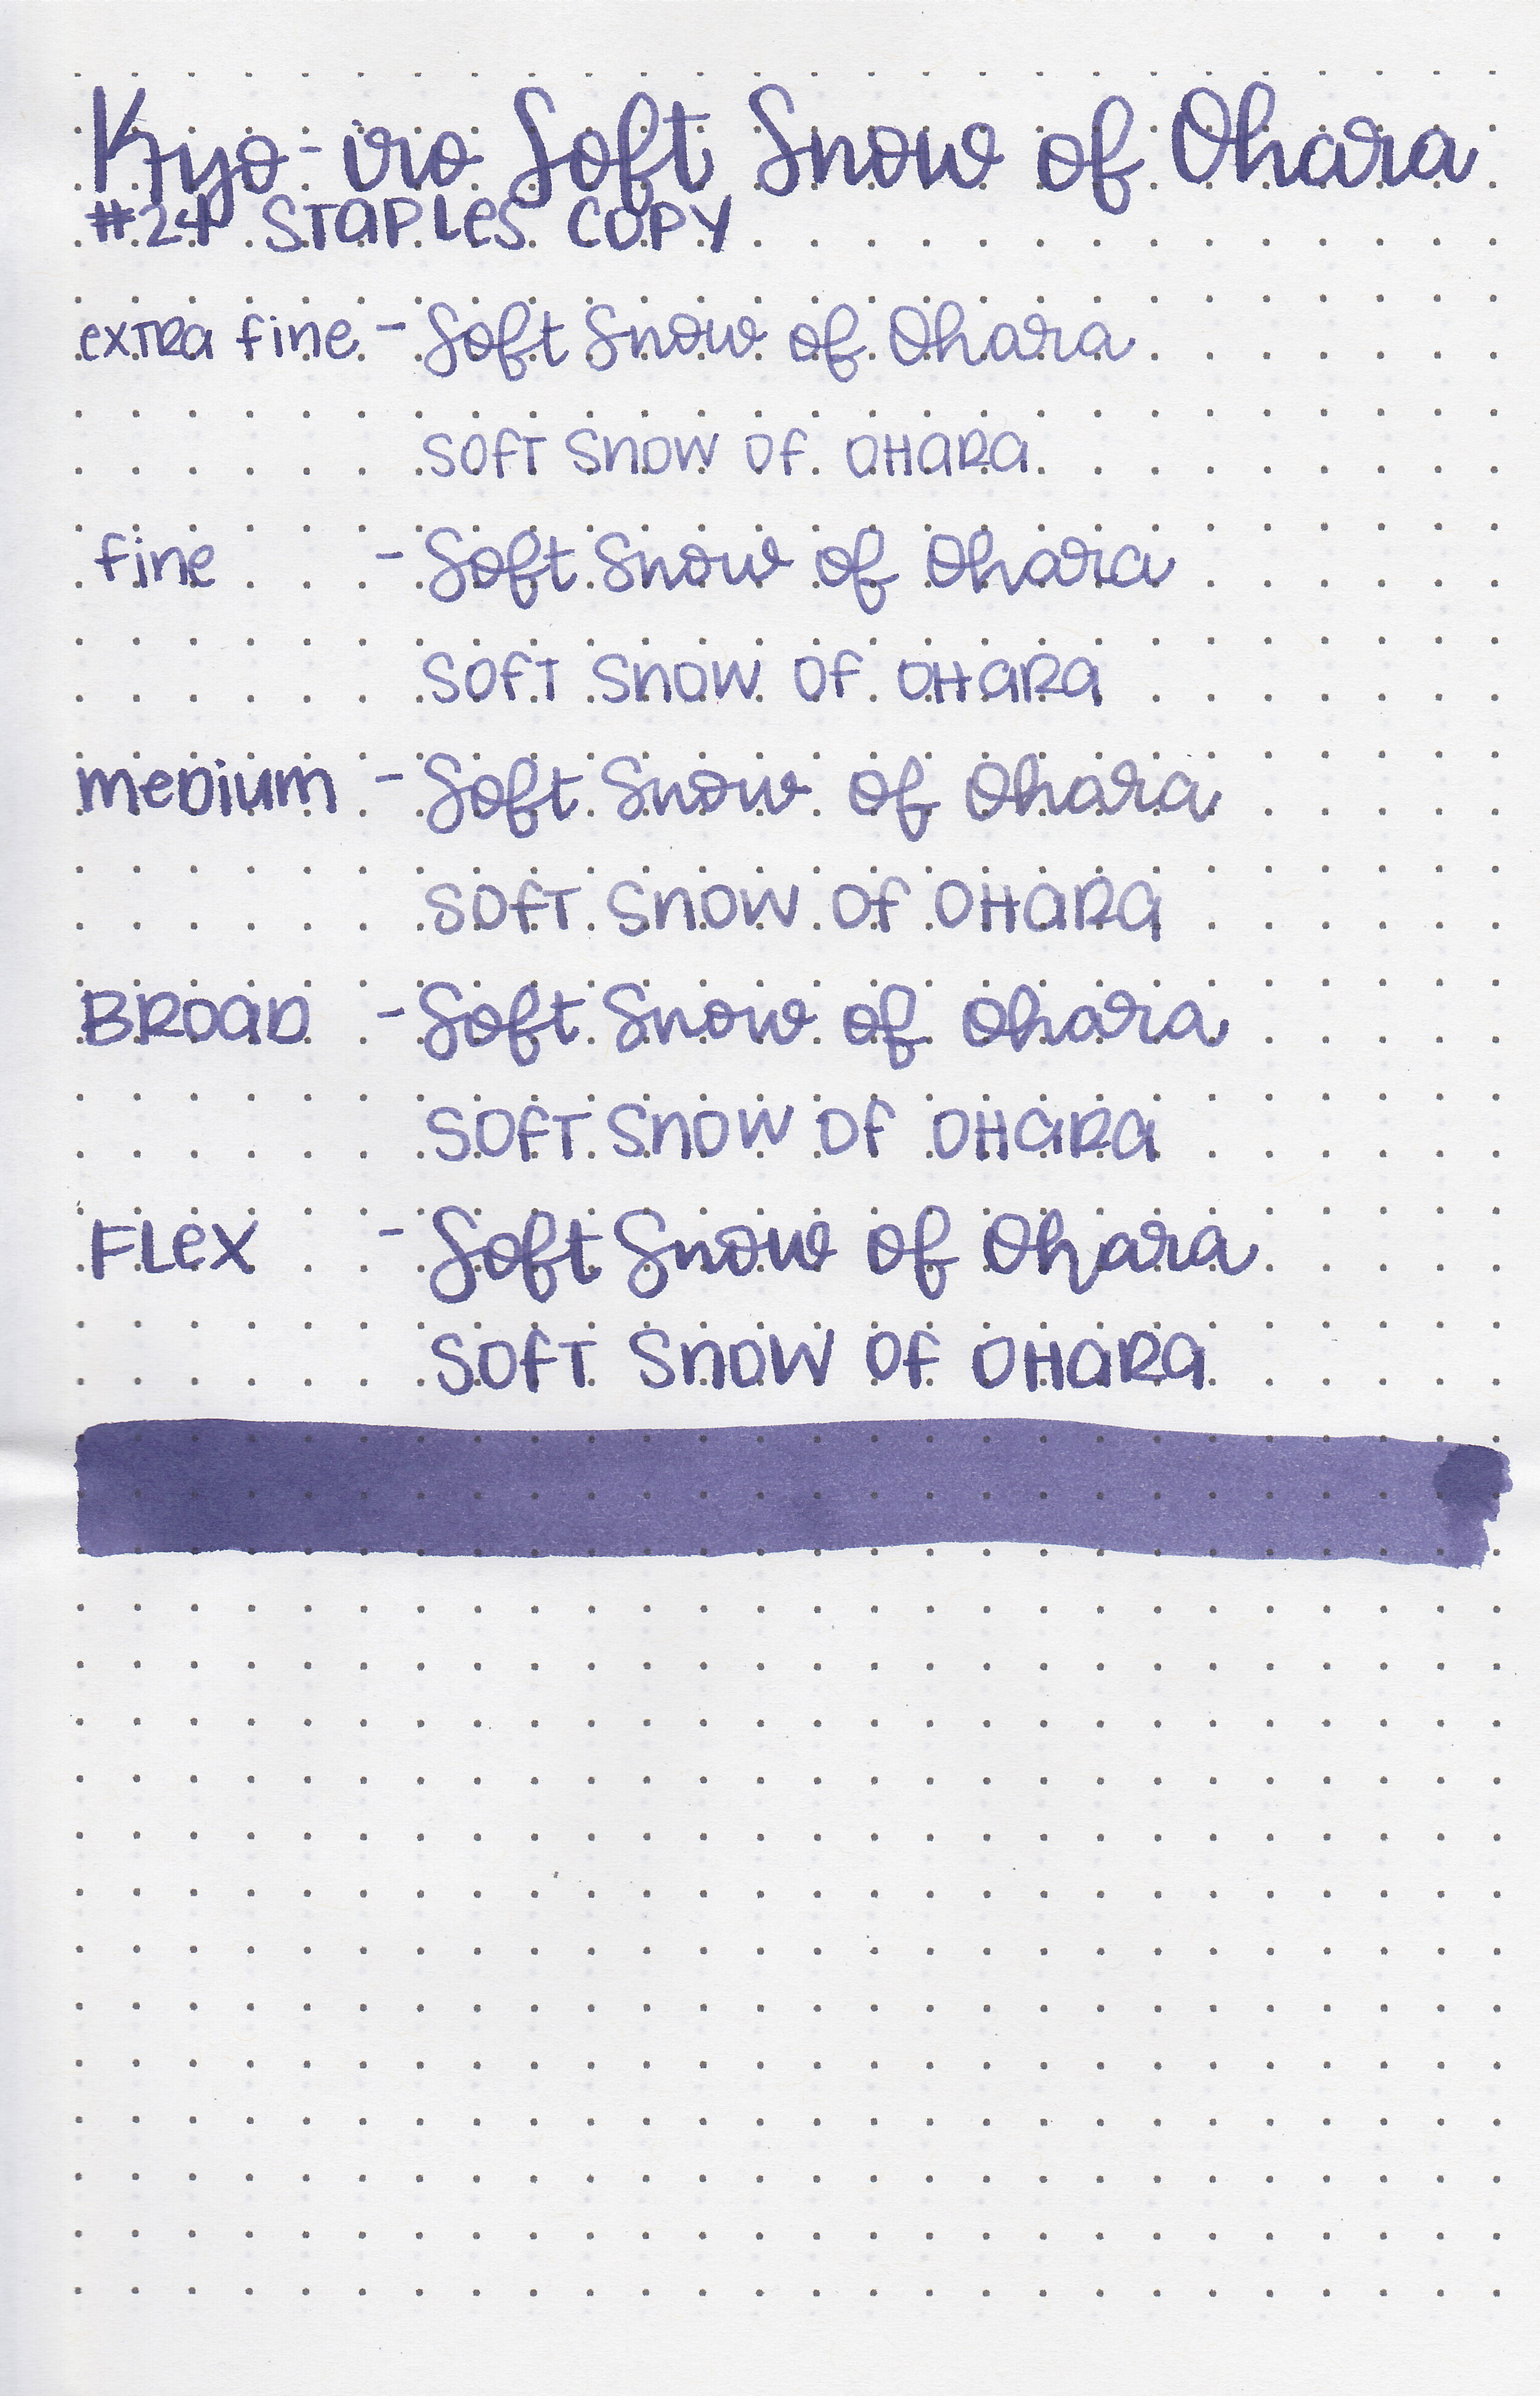 Kyo-iro Soft Snow of Ohara
#24 STAPLES COPY
extra fine - Soft Snow of Ohara
SOFT SNOW OF OHARA
fine - Soft Snow of Ohara
SOFT SNOW OF OHARA
medium - Soft Snow of Ohara
SOFT SNOW OF OHARA
BROAD - Soft Snow of Ohara
SOFT SNOW OF OHARA
FLEX - Soft Snow of Ohara
SOFT SNOW OF OHARA